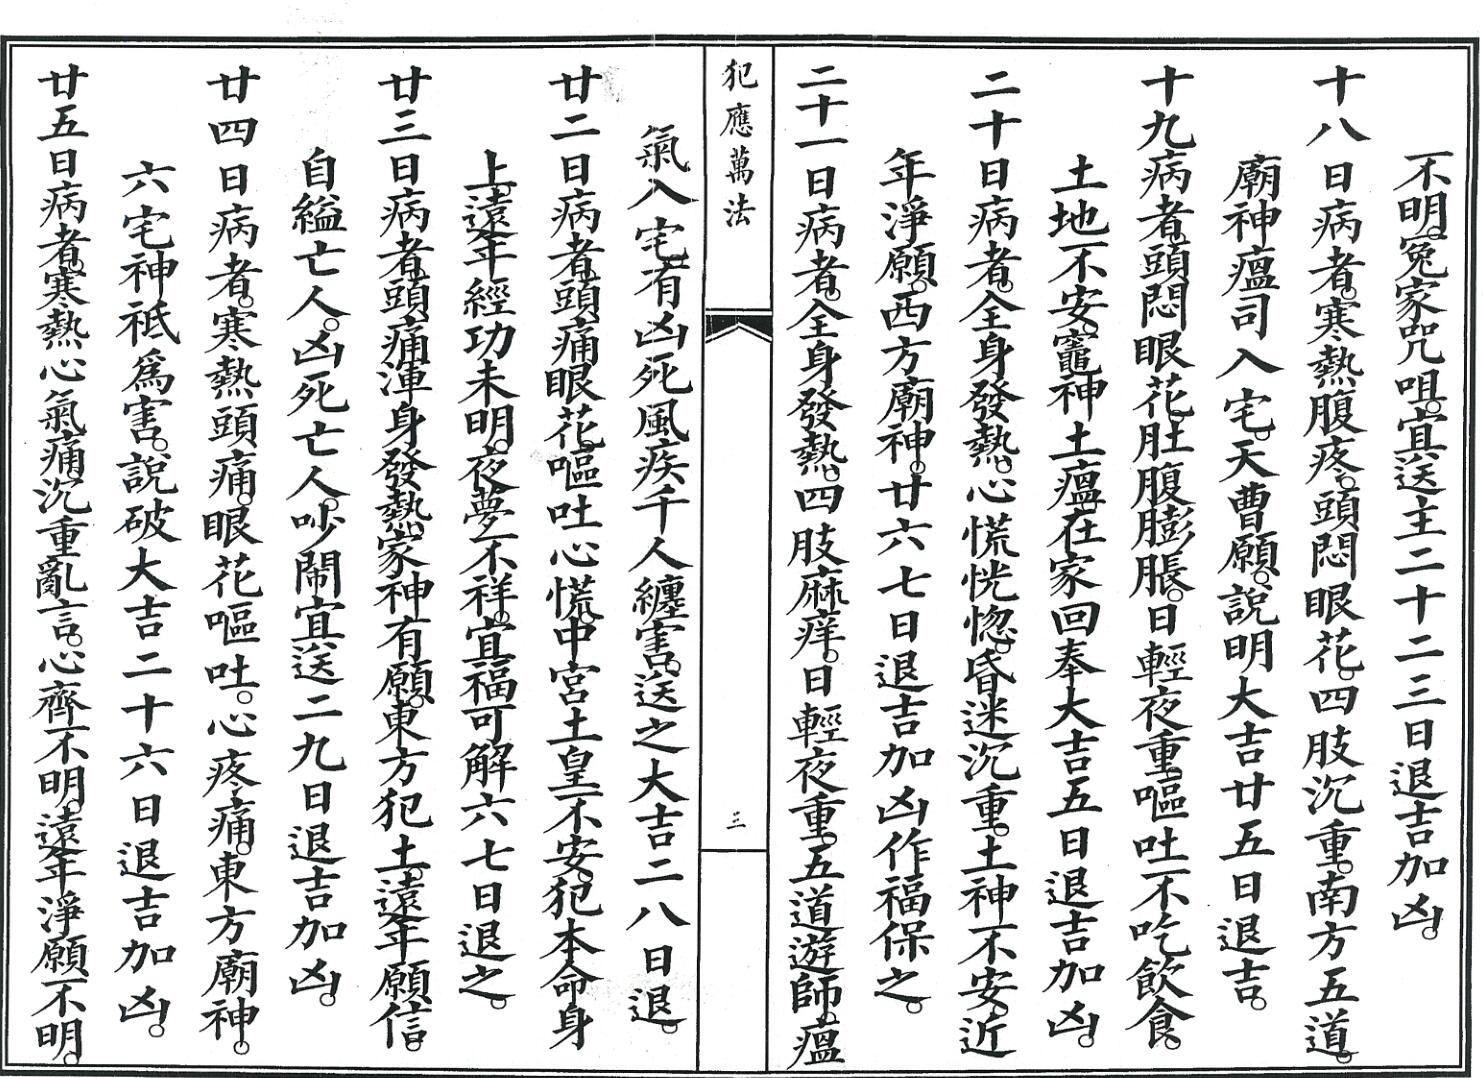 不明。冤家咒咀。宜送主二十二三日退吉加凶。
十八日病者。寒熱腹疼。頭悶眼花。四肢沉重。南方五道。
廟神瘟司入宅。天曹願。說明大吉廿五日退吉。
十九病者。頭悶眼花肚腹膨脹。日輕夜重。嘔吐不吃飲食。
土地不安。竈神土瘟在家回奉大吉五日退吉加凶。
二十日病者。全身發熱。心慌恍惚。昏迷沉重。土神不安。近
年淨願。西方廟神。廿六七日退吉加凶作福保之。
二十一日病者。全身發熱。四肢麻痒。日輕夜重。五道遊師。瘟
犯應萬法
三
氣入宅。有凶死風疾千人纏害。送之大吉二八日退。
廿二日病者。頭痛眼花。嘔吐心慌。中宮土皇不安。犯本命身
上。遠年經功未明。夜夢不祥。宜福可解六七日退之。
廿三日病者。頭痛渾身發熱。家神有願。東方犯土。遠年願信。
自縊亡人。凶死亡人。吵鬧宜送二九日退吉加凶。
廿四日病者。寒熱頭痛。眼花嘔吐。心疼痛。東方廟神。
六宅神祇爲害。說破大吉二十六日退吉加凶。
廿五日病者。寒熱心氣痛。沉重亂言。心齊不明。遠年淨願不明。